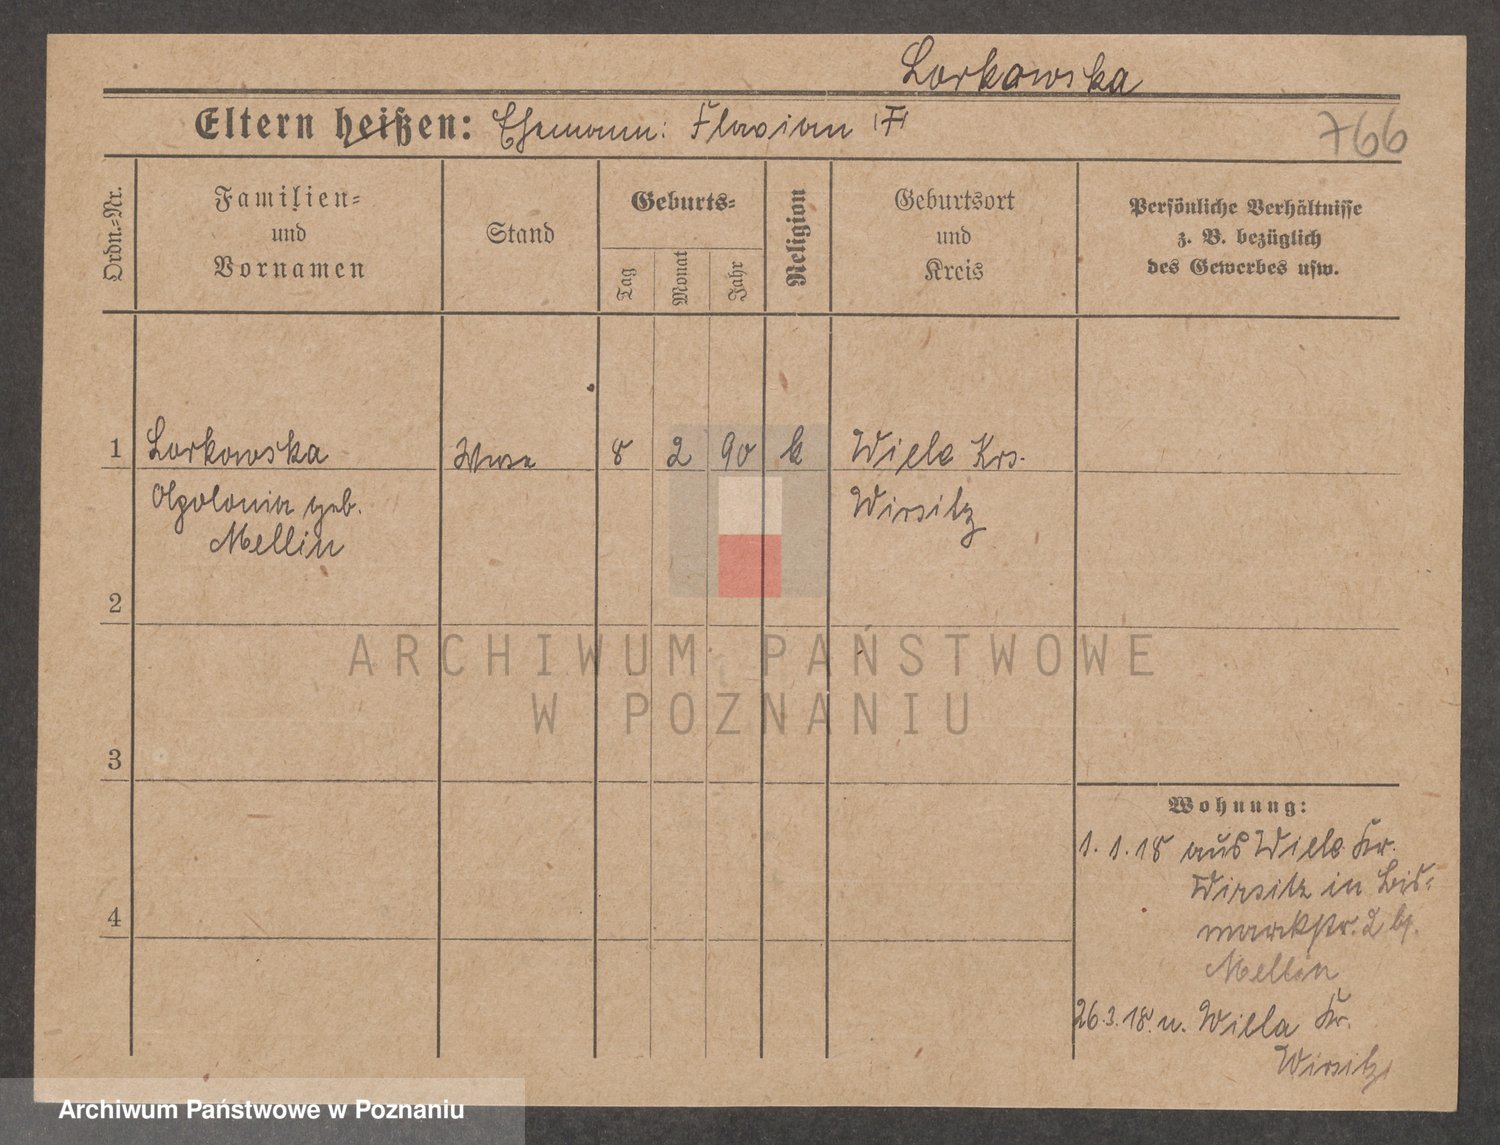 Lorkowska
Eltern heißen: Ehemann: Flavian
766
Ordn.=Nr.
Familien=
und
Vornamen
Stand
Geburts=
Tag
Monat
Jahr
Religion
Geburtsort
und
Kreis
Persönliche Verhältnisse
z. B. bezüglich
des Gewerbes usw.
1
Lorkowska
8 2 90 k
Wiele Krs.
Apolonia geb.
Wirsitz
Mellin
2
ARCHIWUM PAŃSTWOWE
W POZNANIU
3
Wohnung:
1.1.18 aus Wiele Kr.
Wirsitz in Bis=
4
marckstr. 2 bei
Mellin
26.3.18. n. Wiela Kr.
Wirsitz
Archiwum Państwowe w Poznaniu